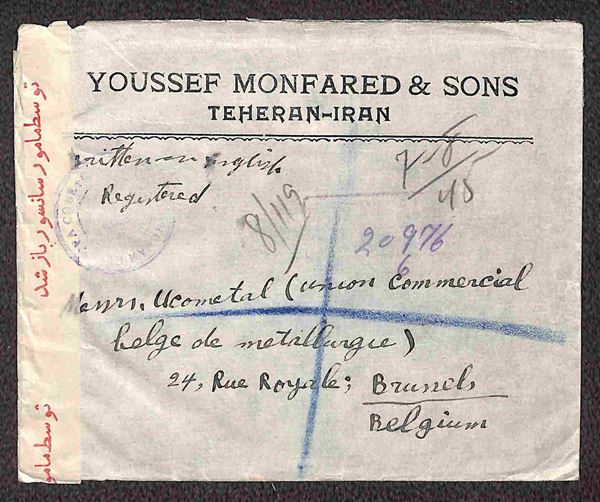 YOUSSEF MONFARED & SONS
TEHERAN-IRAN
written in English.
Registered
7 8/45
8/119
20976
6
Messrs. Ucometal (Union Commercial
belge de metallurgie)
24, Rue Royale; Brussels
Belgium
توسط مامور سانسور باز شد
توسط مامو